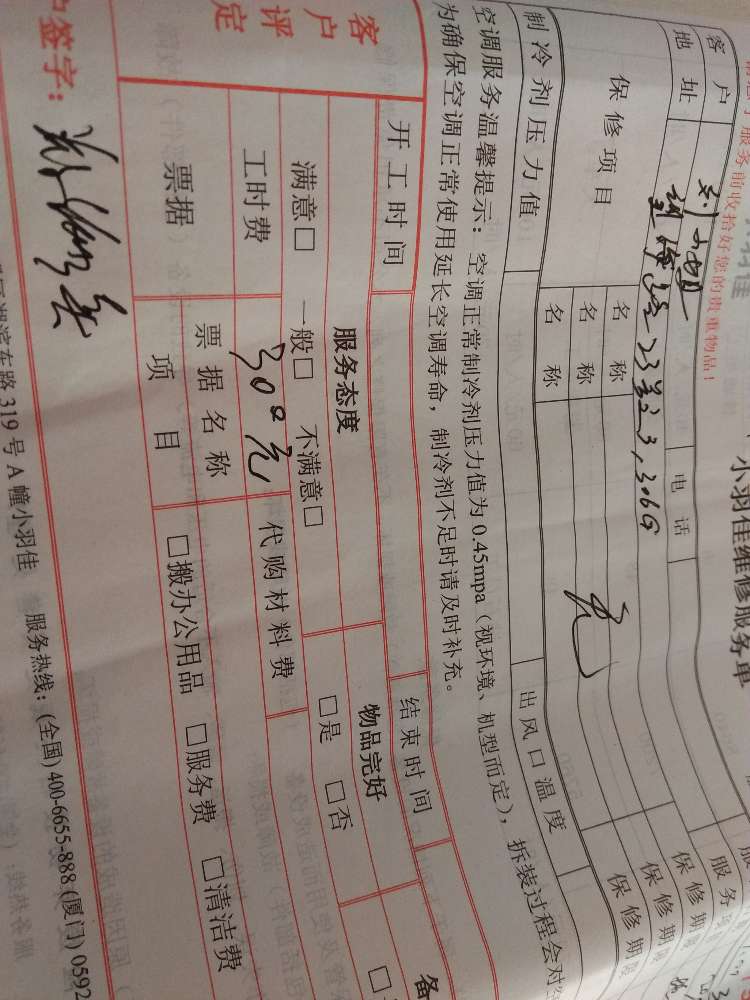 小羽佳维修服务单
服务前收拾好您的贵重物品!
客户 电话 服务
地址 23 3,306 保修期
保修项目 名称 保修期
名称 保修期
名称
制冷剂压力值 出风口温度
空调服务温馨提示:空调正常制冷剂压力值为0.45mpa(视环境、机型而定),拆装过程会对
为确保空调正常使用延长空调寿命,制冷剂不足时请及时补充。
客户评定
开工时间 结束时间
服务态度 物品完好 备
满意□ 一般□ 不满意□ □是 □否 □
工时费 300元 代购材料费
票据 票据名称项目 □搬办公用品 □服务费 □清洁费
签字:
车路319号A幢小羽佳 服务热线:(全国)400-6655-888(厦门)0592